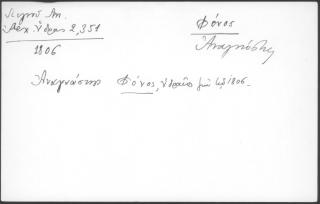 Λιγνὸ Αν.
Ἀρχ. Ὕδρας 2,351
1806
Φόνος
Ἀναγνώστης
Ἀναγνώστης Φόνος, Ὑδραῖος 1806.